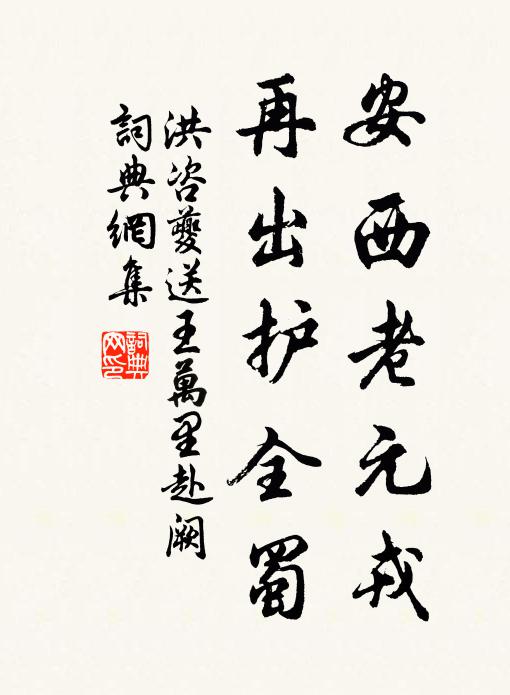 安西老元戎
再出护全蜀
洪咨夔送王萬里赴闕
詞典網集
詞典網印